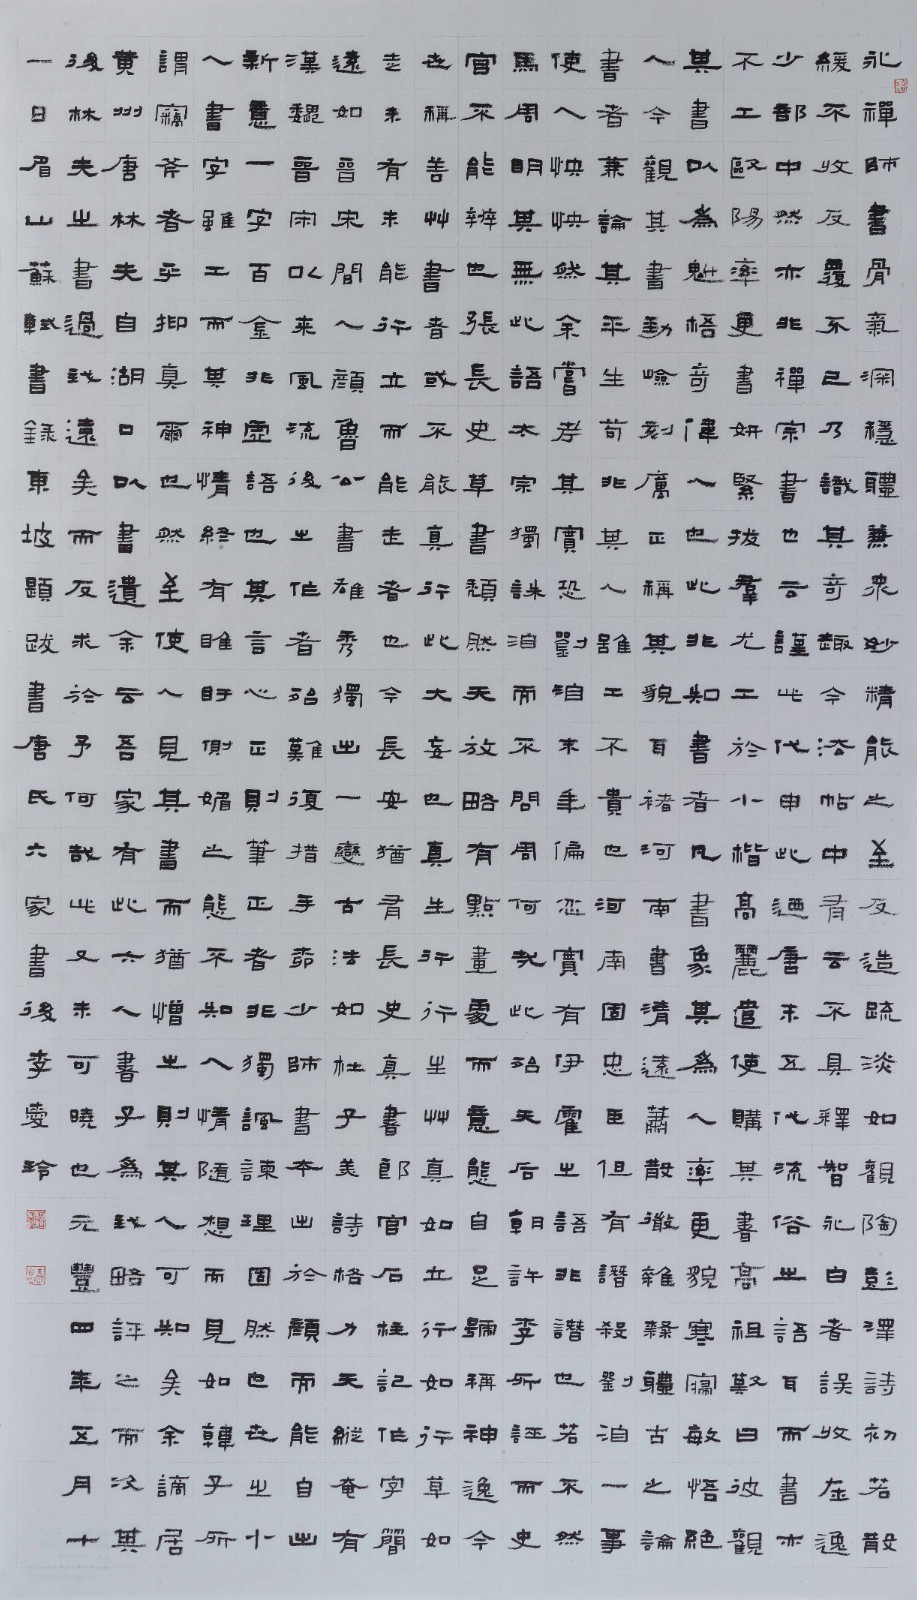 永禪師書骨氣深穩體兼衆妙精能之至反造疏淡如觀陶彭澤詩初若散
緩不收反覆不已乃識其奇趣今法帖中有云不具釋智永白者誤收在逸
少部中然亦非禪宗書也云謹此代申此迺唐末五代流俗之語耳而書亦
不工歐陽率更書妍緊拔羣尤工於小楷高麗遣使購其書高祖歎曰彼觀
其書以為魁梧奇偉人也此非知書者凡書象其為人率更貌寒寢敏悟絕
人今觀其書勁嶮刻厲正稱其貌耳褚河南書清遠蕭散微雜隸體古之論
書者兼論其平生苟非其人雖工不貴也河南固忠臣但有譖殺劉洎一事
使人怏怏然余嘗考其實恐劉洎末年偏忿實有伊霍之語非譖也若不然
馬周明其無此語太宗獨誅洎而不問周何哉此殆天后朝許李所誣而史
官不能辨也張長史草書頹然天放略有點畫處而意態自足號稱神逸今
世稱善艸書者或不能真行此大妄也真生行行生艸真如立行如行草如
走未有未能行立而能走者也今長安猶有長史真書郎官石柱記作字簡
遠如晉宋間人顏魯公書雄秀獨出一變古法如杜子美詩格力天縱奄有
漢魏晉宋以來風流後之作者殆難復措手柳少師書本出於顏而能自出
新意一字百金非虛語也其言心正則筆正者非獨諷諫理固然也世之小
人書字雖工而其神情終有睢盱側媚之態不知人情隨想而見如韓子所
謂竊斧者乎抑真爾也然至使人見其書而猶憎之則其人可知矣余謫居
黄州唐林夫自湖口以書遺余云吾家有此六人書子為我略評之而次其
後林夫之書過我遠矣而反求於予何哉此又未可曉也元豐四年五月十
一日眉山蘇軾書錄東坡題跋書唐氏六家書後李愛玲